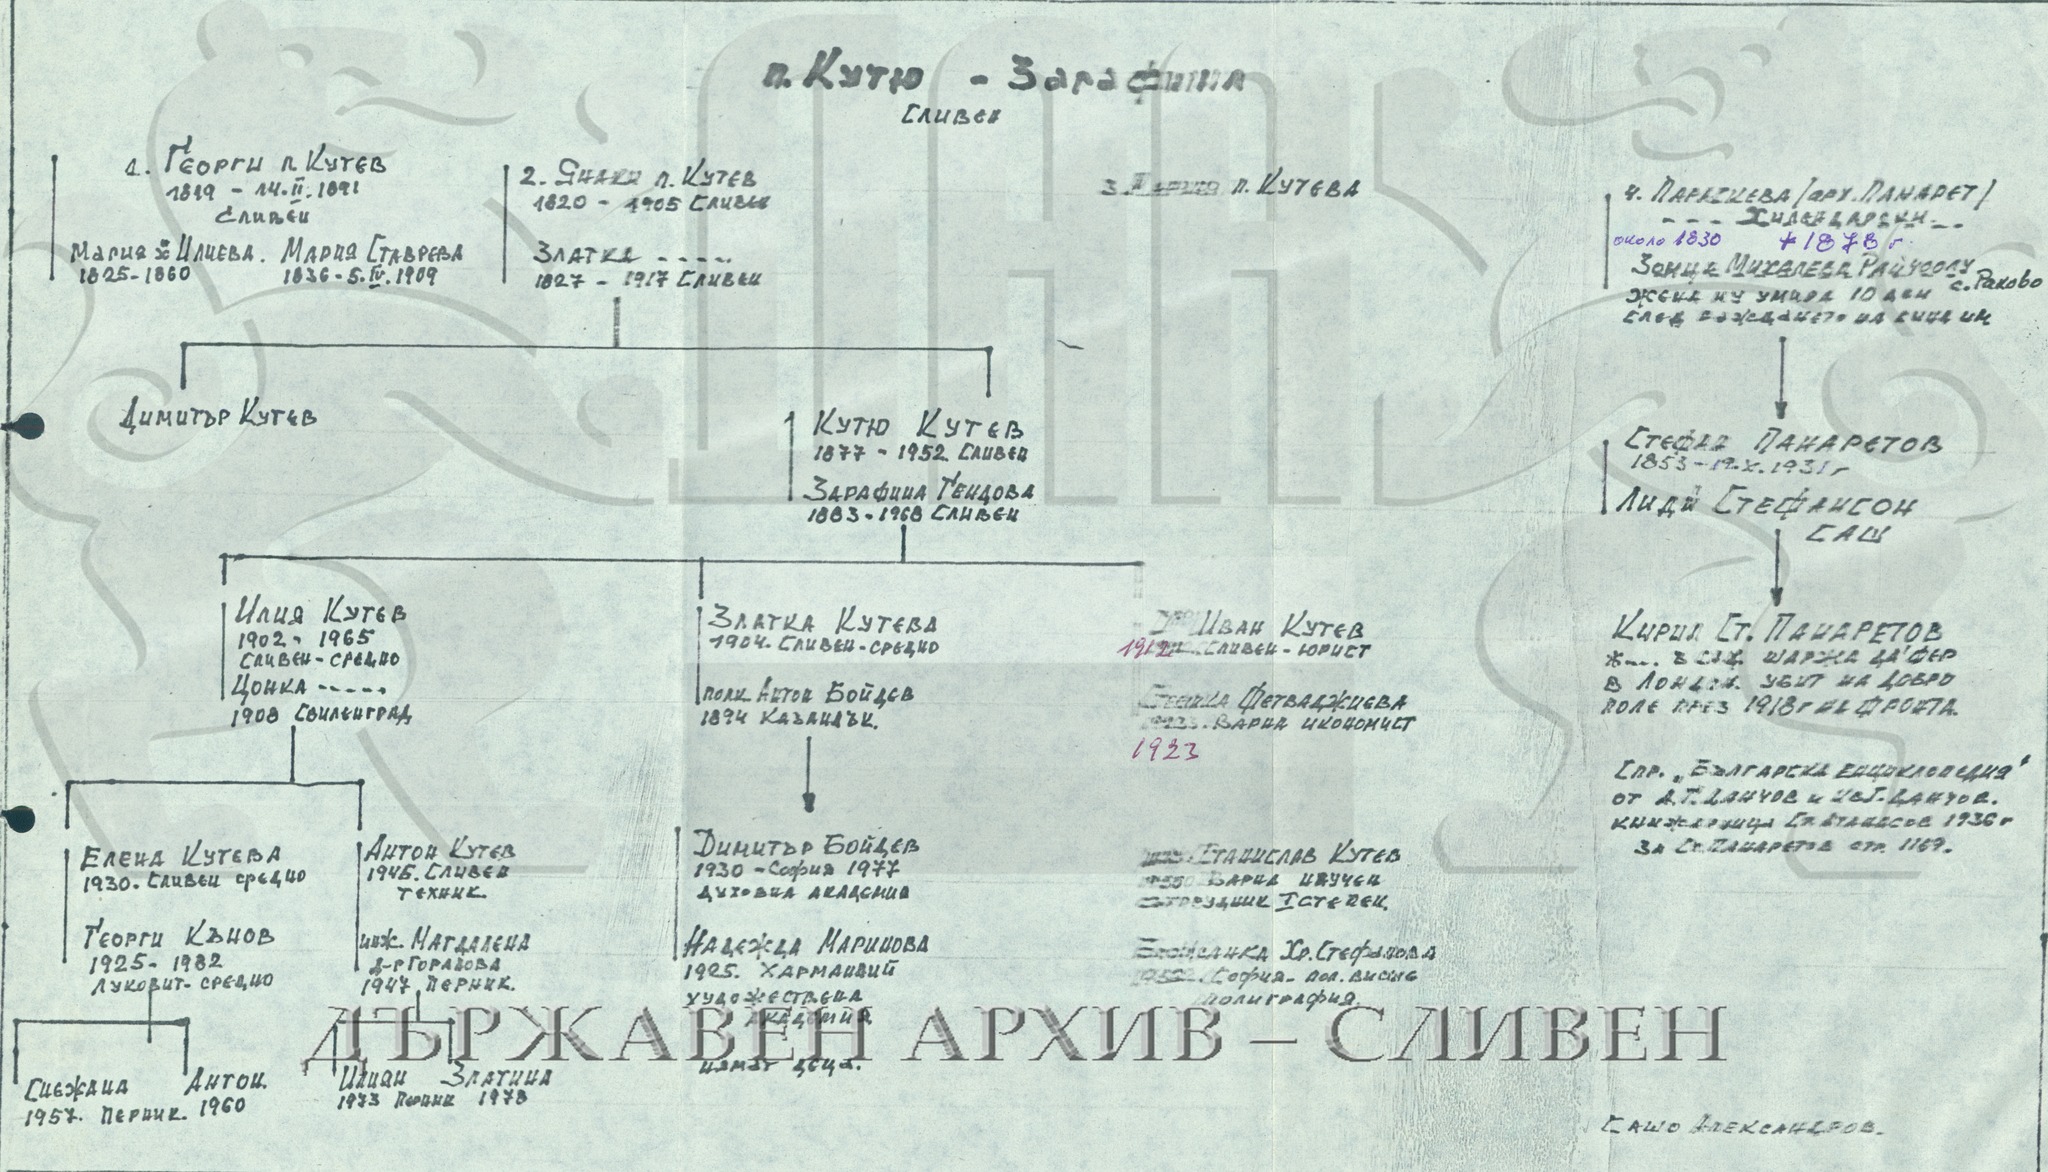 п. Кутю - Зарафина
Сливен
1. Георги п. Кутев
1819 - 14.II.1891
Сливен
Мария х. Илиева. Мария Ставрева
1825-1860 1836-5.IV.1909
2. Янаки п. Кутев
1820 - 1905 Сливен
Златка -----
1827 - 1917 Сливен
3. Мария п. Кутева
4. Парасиева /арх. Панарет/
--- Хилендарски ---
около 1830 +1878 г.
Зоица Михалева Райчоолу
с. Раково
жена му умира 10 ден
след раждането на сина им
Димитър Кутев
Кутю Кутев
1877 - 1952 Сливен
Зарафина Гендова
1883 - 1968 Сливен
Стефан Панаретов
1853 - 19.X.1931 г
Лиди Стефансон
САЩ
Илия Кутев
1902 - 1965
Сливен - средно
Цонка -----
1908 Свиленград
Златка Кутева
1904. Сливен - средно
полк. Антон Бойдев
1894 Казанлък.
Иван Кутев
1912 Сливен - юрист
Стефка Фетваджиева
1923. Варна икономист
1923
Кирил Ст. Панаретов
ж--- в САЩ. шаржа да'фер
в Лондон. убит на Добро
поле през 1918 г на фронта.
Спр. "Българска енциклопедия"
от Н.Г. Данчов и Ив.Г. Данчов.
книжарница Ст. Атанасов 1936 г
за Ст. Панаретов стр. 1169.
Елена Кутева
1930. Сливен средно
Георги Кънов
1925 - 1982
Луковит - средно
Антон Кутев
1945. Сливен
техник.
инж. Магдалена
д-р Горанова
1947 Перник.
Димитър Бойдев
1930 - София 1977
духовна академия
Надежда Маринова
1925. Харманлий
художествена
академия
нямат деца.
Станислав Кутев
1950 Варна научен
сътрудник I степен
Божанка Хр. Стефанова
1952 София - пол. висше
полиграфия.
Снежана Антон.
1957. Перник. 1960
Илиян Златина
1973 Перник 1978
ДЪРЖАВЕН АРХИВ – СЛИВЕН
Сашо Александров.